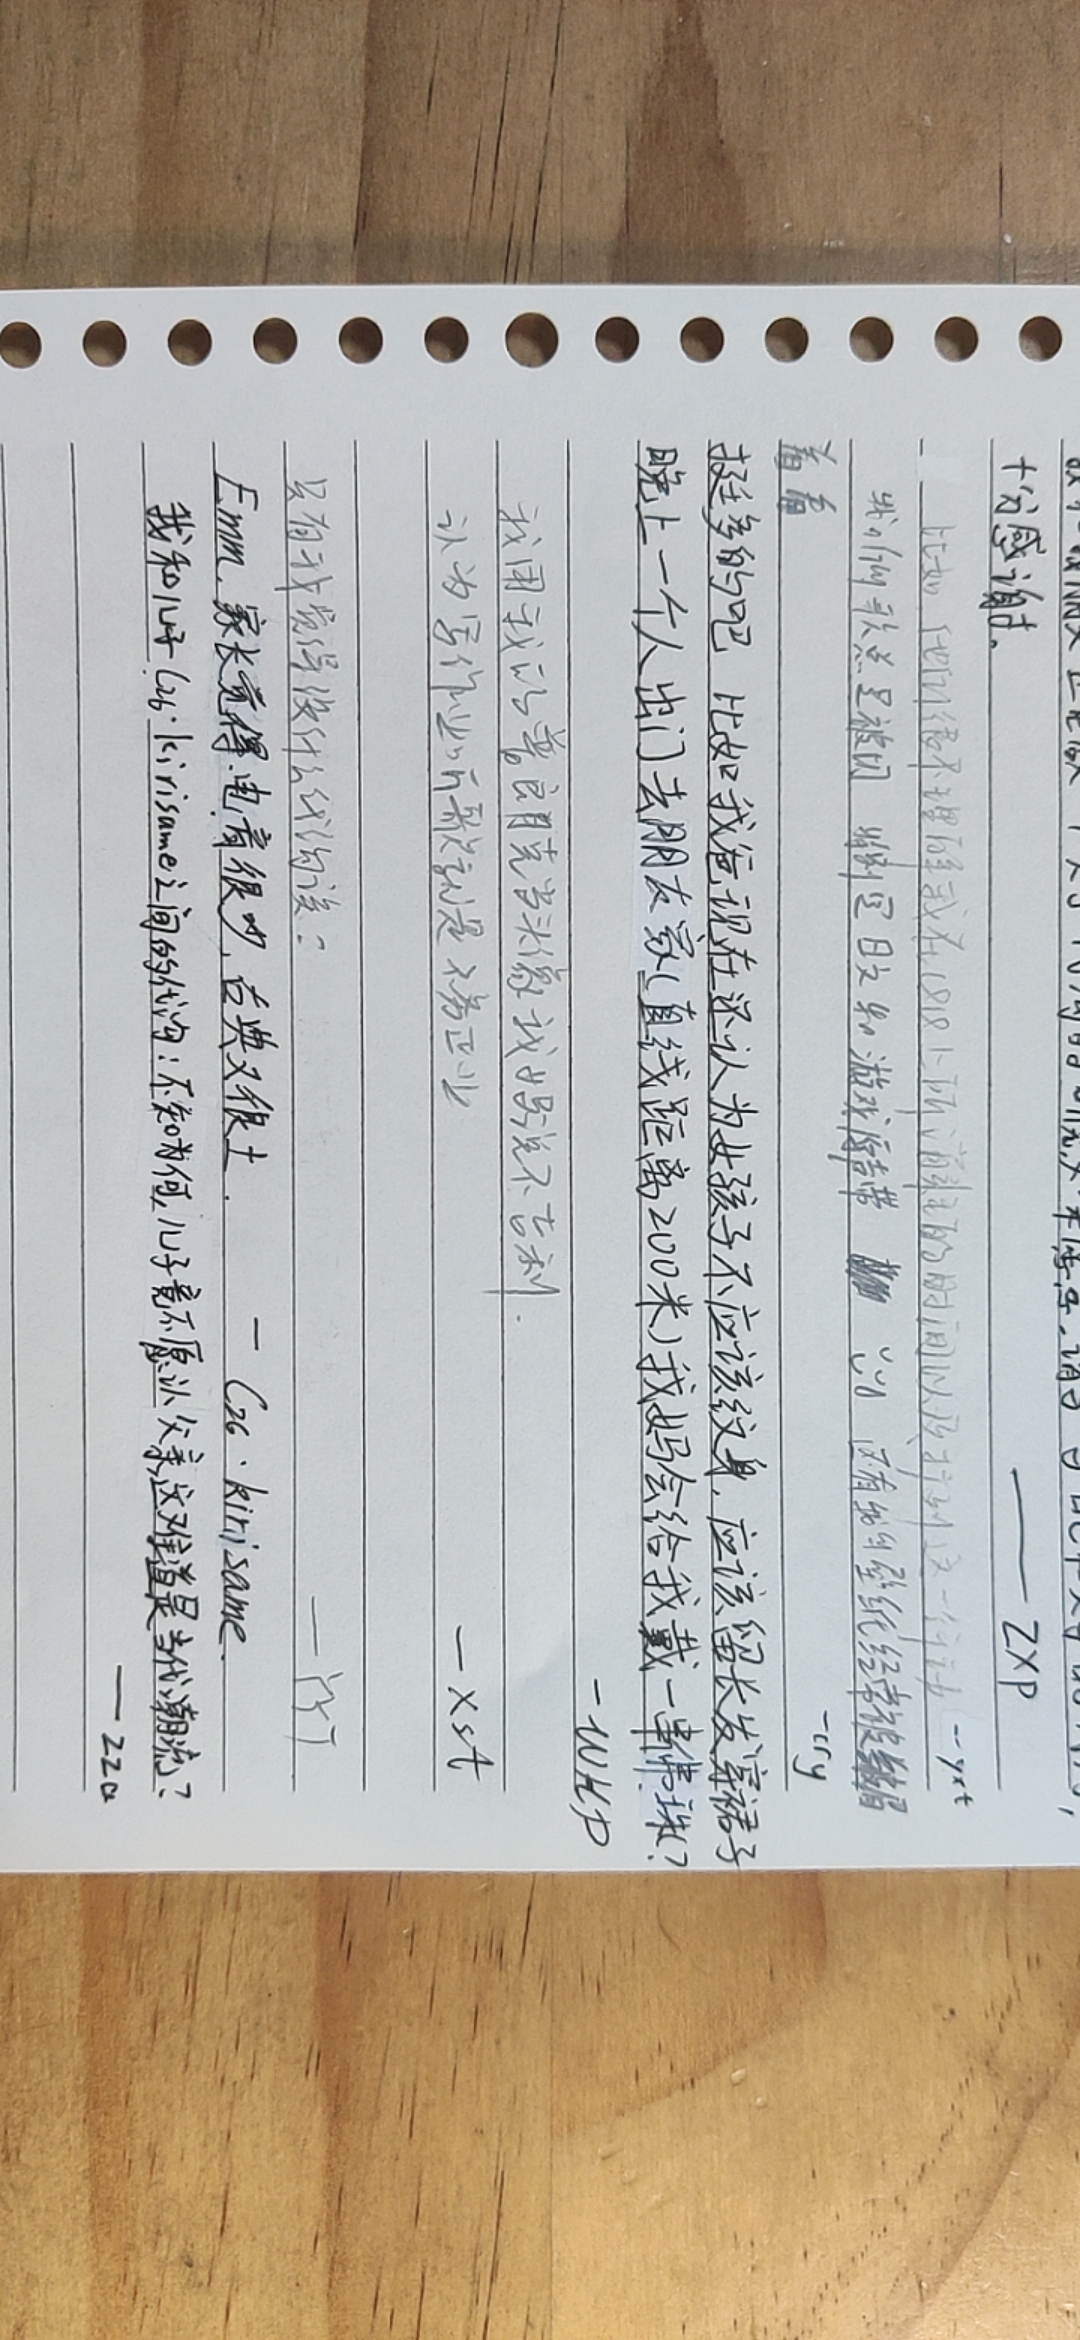 十分感谢。 —— ZXP
比如 他们很不理解我在1818上所消耗的时间以及打到这一行动 -yxt
我的歌总是被切 特别是日文和游戏原声带 还有我的壁纸经常被
着看 -cry
挺多的吧 比如我爸现在还认为女孩子不应该纹身,应该留长发穿裙子
晚上一个人出门去朋友家(直线距离200米)我妈会给我戴一串佛珠(?
-WHP
我用我的普朗克当头像我妈说不吉利.
认为写作业听歌就是不务正业 —xst
只有我觉得没什么代沟诶? ——YYT
Emm. 家长觉得电音很吵, 古典又很土. - C26·kirisame.
我和儿子C26·kirisame之间的代沟:不知为何,儿子竟不愿认父亲,这难道是当代潮流?
—zza